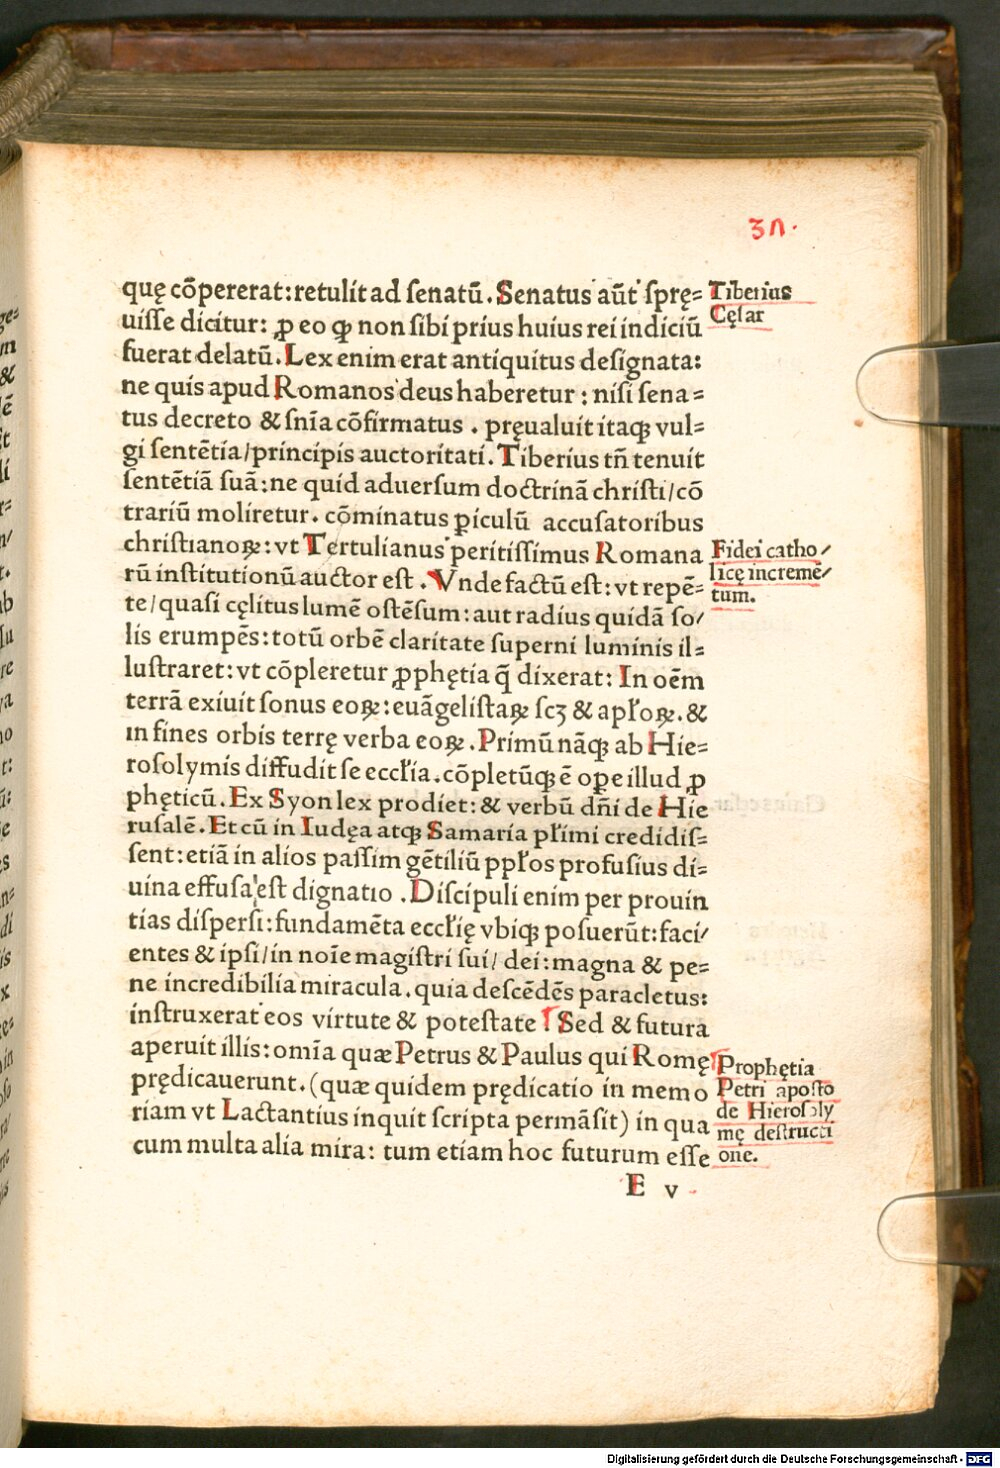 3Λ.
quę cõpererat:retulit ad ſenatũ. Senatus aũt ſprę=
uiſſe dicitur: ꝓ eo ꝙ non ſibi prius huius rei indiciũ
fuerat delatũ. Lex enim erat antiquitus deſignata:
ne quis apud Romanos deus haberetur : niſi ſena=
tus decreto & ſnĩa cõfirmatus . pręualuit itaqꝫ vul=
gi ſentẽtia/principis auctoritati. Tiberius tñ tenuit
ſentẽtiã ſuã:ne quid aduerſum doctrinã chriſti/cõ
trariũ moliretur. cõminatus ꝑiculũ accuſatoribus
chriſtianoꝝ: vt Tertulianus peritiſſimus Romana
rũ inſtitutionũ auctor eſt . Vnde factũ eſt: vt repẽ=
te/quaſi cęlitus lumẽ oſtẽſum: aut radius quidã ſo/
lis erumpẽs: totũ orbẽ claritate ſuperni luminis il=
luſtraret: vt cõpleretur ꝓphętia q̃ dixerat: In oẽm
terrã exiuit ſonus eoꝝ: euãgeliſtaꝝ ſcꝫ & apłoꝝ. &
in fines orbis terrę verba eoꝝ . Primũ nãqꝫ ab Hie=
roſolymis diffudit ſe eccłia. cõpletũqꝫ ẽ oꝑe illud ꝓ
phęticũ. Ex Syon lex prodiet: & verbũ dñi de Hie
ruſalẽ. Et cũ in Iudęa atqꝫ Samaria płimi credidiſ=
ſent: etiã in alios paſſim gẽtiliũ ppłos profuſius di=
uina effuſa eſt dignatio . Diſcipuli enim per prouin
tias diſperſi: fundamẽta eccłię vbiqꝫ poſuerũt: faci/
entes & ipſi/in noĩe magiſtri ſui/ dei: magna & pe=
ne incredibilia miracula. quia deſcẽdẽs paracletus:
inſtruxerat eos virtute & poteſtate . Sed & futura
aperuit illis: omĩa quæ Petrus & Paulus qui Romę
prędicauerunt. (quæ quidem prędicatio in memo
riam vt Lactantius inquit ſcripta permãſit) in qua
cum multa alia mira: tum etiam hoc futurum eſſe
E v
Tiberius
Cęſar
Fidei catho/
licę incremẽ/
tum.
Prophętia
Petri apoſto
de Hieroſoly
mę deſtructi
one.
Digitalisierung gefördert durch die Deutsche Forschungsgemeinschaft - DFG